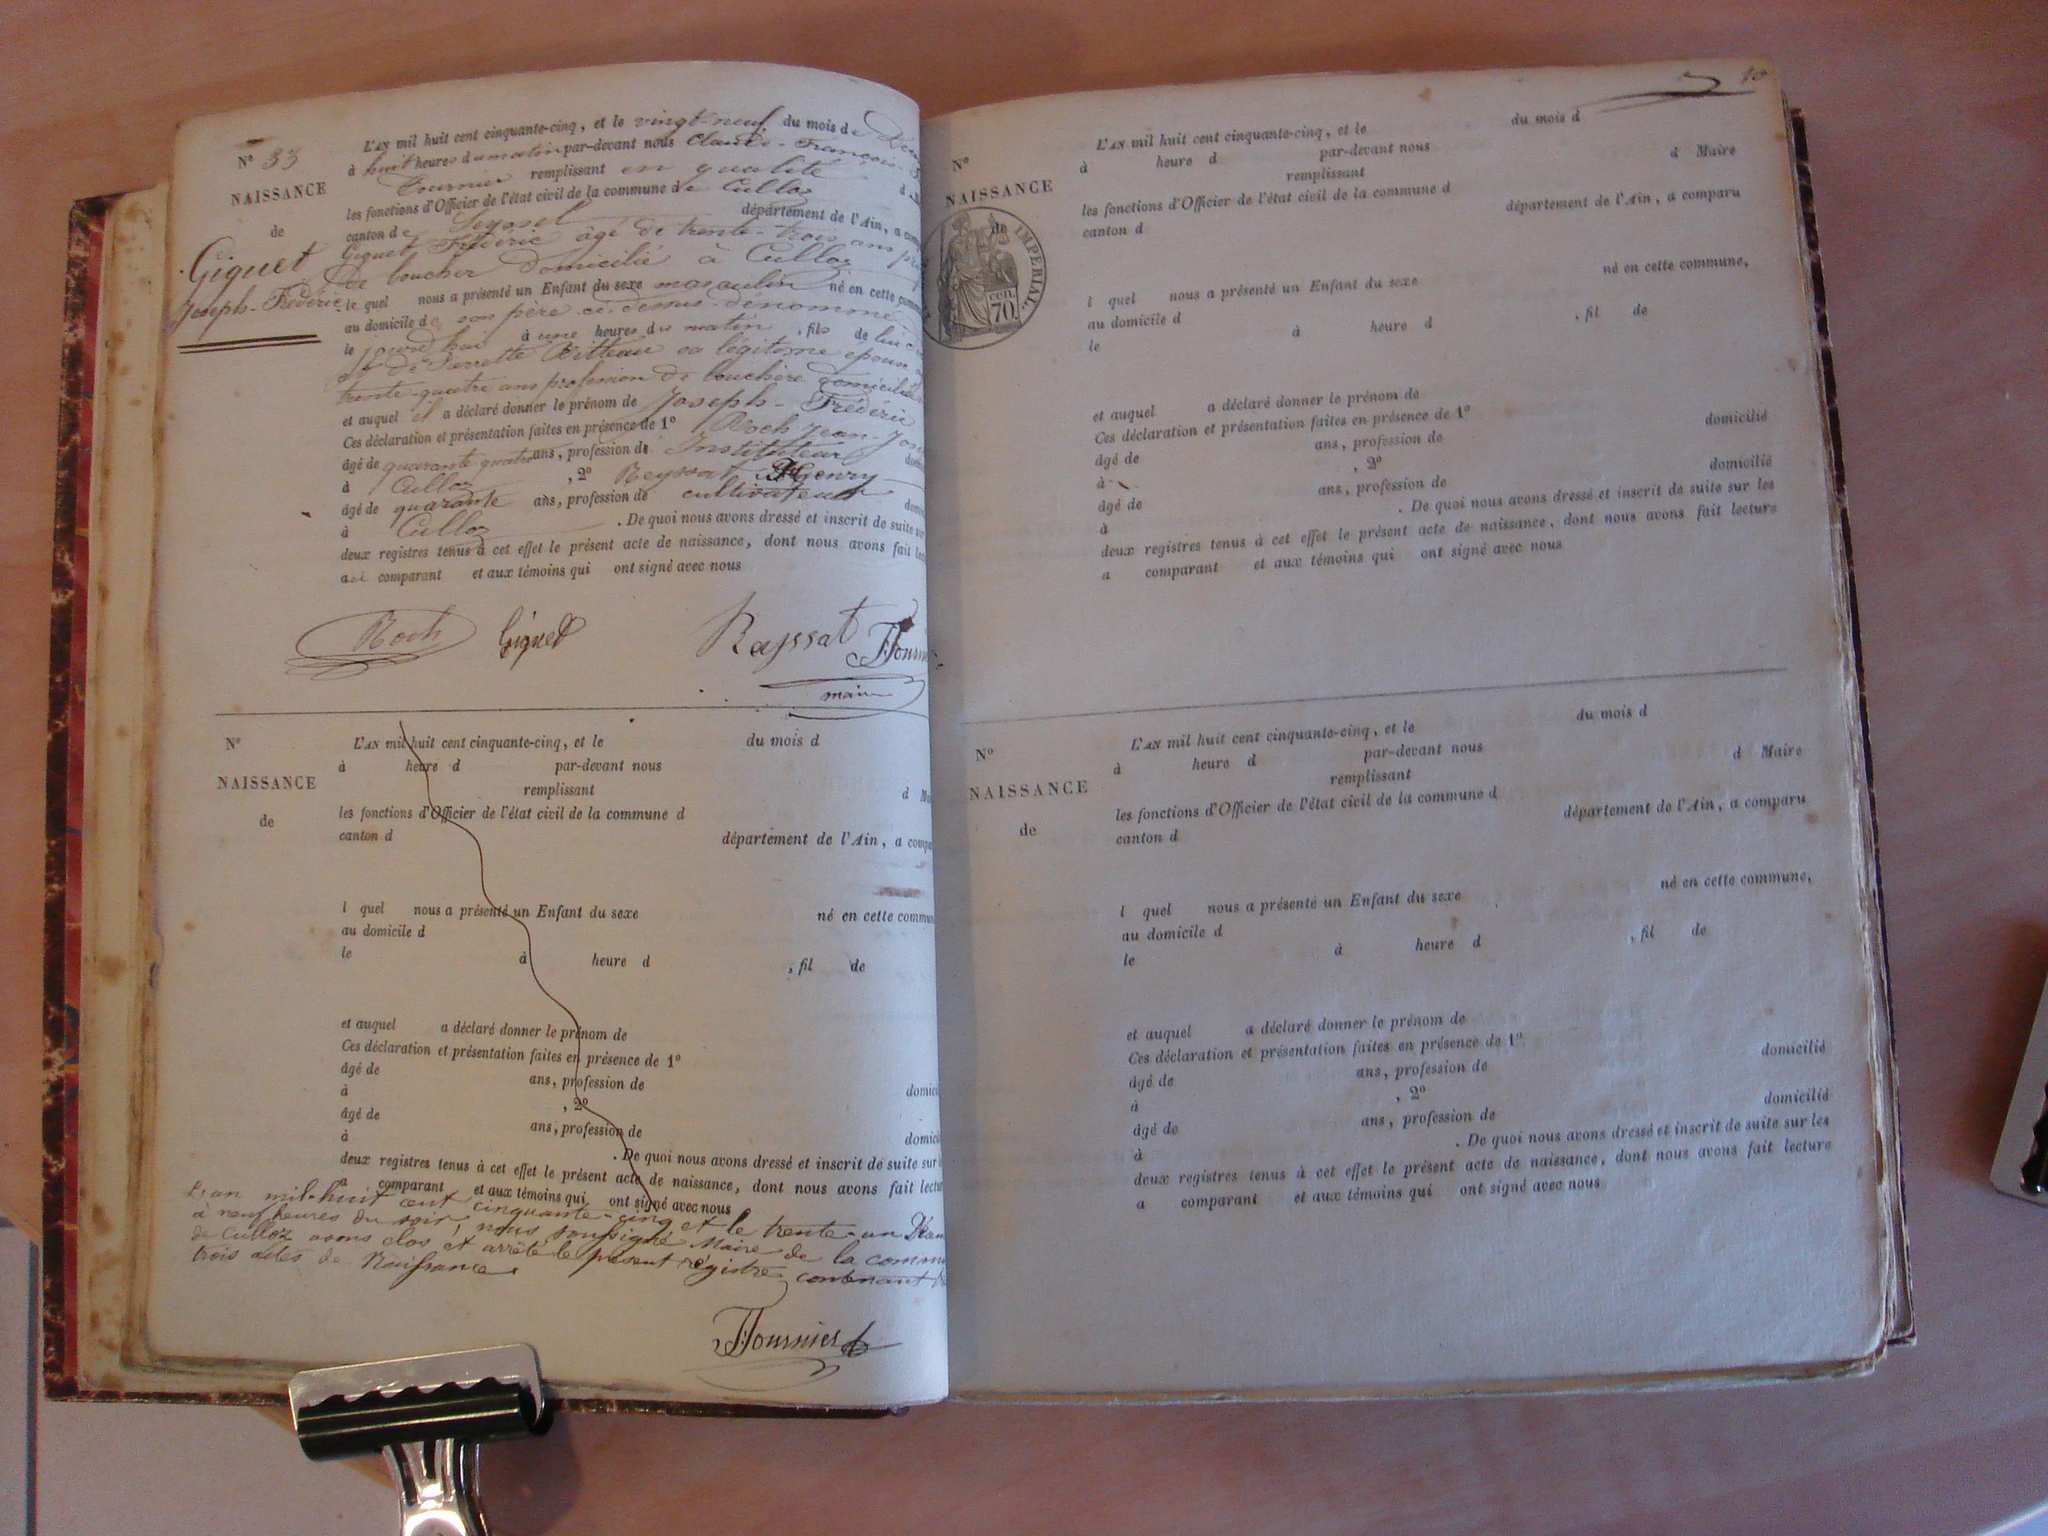 Nº 33
NAISSANCE
de
Giguet
Joseph-Frédéric
L'AN mil huit cent cinquante-cinq, et le vingt-neuf du mois de
à huit heures du matin par-devant nous Claude-François
Fournier remplissant en qualité d
les fonctions d'Officier de l'état civil de la commune de Culloz
canton de Seyssel département de l'Ain, a
Giguet Frédéric âgé de trente-trois ans
de boucher domicilié à Culloz
le quel nous a présenté un Enfant du sexe masculin né en cette
au domicile de son père ci-dessus dénommé
le jourd'hui à une heures du matin, fils de lui
et de Pierrette sa légitime épouse
trente-quatre ans profession de bouchère domiciliée
et auquel il a déclaré donner le prénom de Joseph-Frédéric
Ces déclaration et présentation faites en présence de 1º Roch Jean-
âgé de quarante quatre ans, profession d' Instituteur
à Culloz, 2º Reyssat Henry
âgé de quarante ans, profession de cultivateur
à Culloz. De quoi nous avons dressé et inscrit de suite
deux registres tenus à cet effet le présent acte de naissance, dont nous avons fait
au comparant et aux témoins qui ont signé avec nous
Roch Giguet Rayssat
maire
Nº
NAISSANCE
de
L'AN mil huit cent cinquante-cinq, et le du mois d
à heure d par-devant nous
remplissant d
les fonctions d'Officier de l'état civil de la commune d
canton d département de l'Ain, a
l quel nous a présenté un Enfant du sexe né en cette
au domicile d
le à heure d , fil de
et auquel a déclaré donner le prénom de
Ces déclaration et présentation faites en présence de 1º
âgé de ans, profession de
à , 2º
âgé de ans, profession de
à . De quoi nous avons dressé et inscrit de suite sur
deux registres tenus à cet effet le présent acte de naissance, dont nous avons fait
a comparant et aux témoins qui ont signé avec nous
L'an mil-huit cent cinquante-cinq et le trente-un
à neuf heures du soir, nous soussigné Maire de la
de Culloz avons clos et arrêté le présent régistre contenant
trois actes de Naissance.
Fournier
10
Nº
NAISSANCE
de
IMPERIAL
CEN.
70
L'AN mil huit cent cinquante-cinq, et le du mois d
à heure d par-devant nous
remplissant d Maire
les fonctions d'Officier de l'état civil de la commune d
canton d département de l'Ain, a comparu
l quel nous a présenté un Enfant du sexe né en cette commune,
au domicile d
le à heure d , fil de
et auquel a déclaré donner le prénom de
Ces déclaration et présentation faites en présence de 1º
âgé de ans, profession de domicilié
à , 2º
âgé de ans, profession de domicilié
à . De quoi nous avons dressé et inscrit de suite sur les
deux registres tenus à cet effet le présent acte de naissance, dont nous avons fait lecture
a comparant et aux témoins qui ont signé avec nous
Nº
NAISSANCE
de
L'AN mil huit cent cinquante-cinq, et le du mois d
à heure d par-devant nous
remplissant d Maire
les fonctions d'Officier de l'état civil de la commune d
canton d département de l'Ain, a comparu
l quel nous a présenté un Enfant du sexe né en cette commune,
au domicile d
le à heure d , fil de
et auquel a déclaré donner le prénom de
Ces déclaration et présentation faites en présence de 1º
âgé de ans, profession de domicilié
à , 2º
âgé de ans, profession de domicilié
à . De quoi nous avons dressé et inscrit de suite sur les
deux registres tenus à cet effet le présent acte de naissance, dont nous avons fait lecture
a comparant et aux témoins qui ont signé avec nous